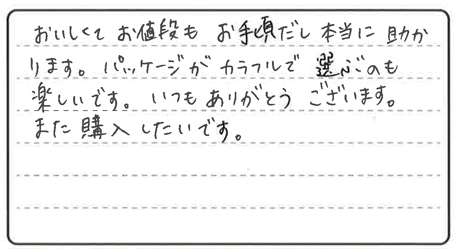 おいしくて お値段も お手頃だし 本当に 助か
ります。パッケージが カラフルで 選ぶのも
楽しいです。いつも ありがとう ございます。
また 購入 したいです。